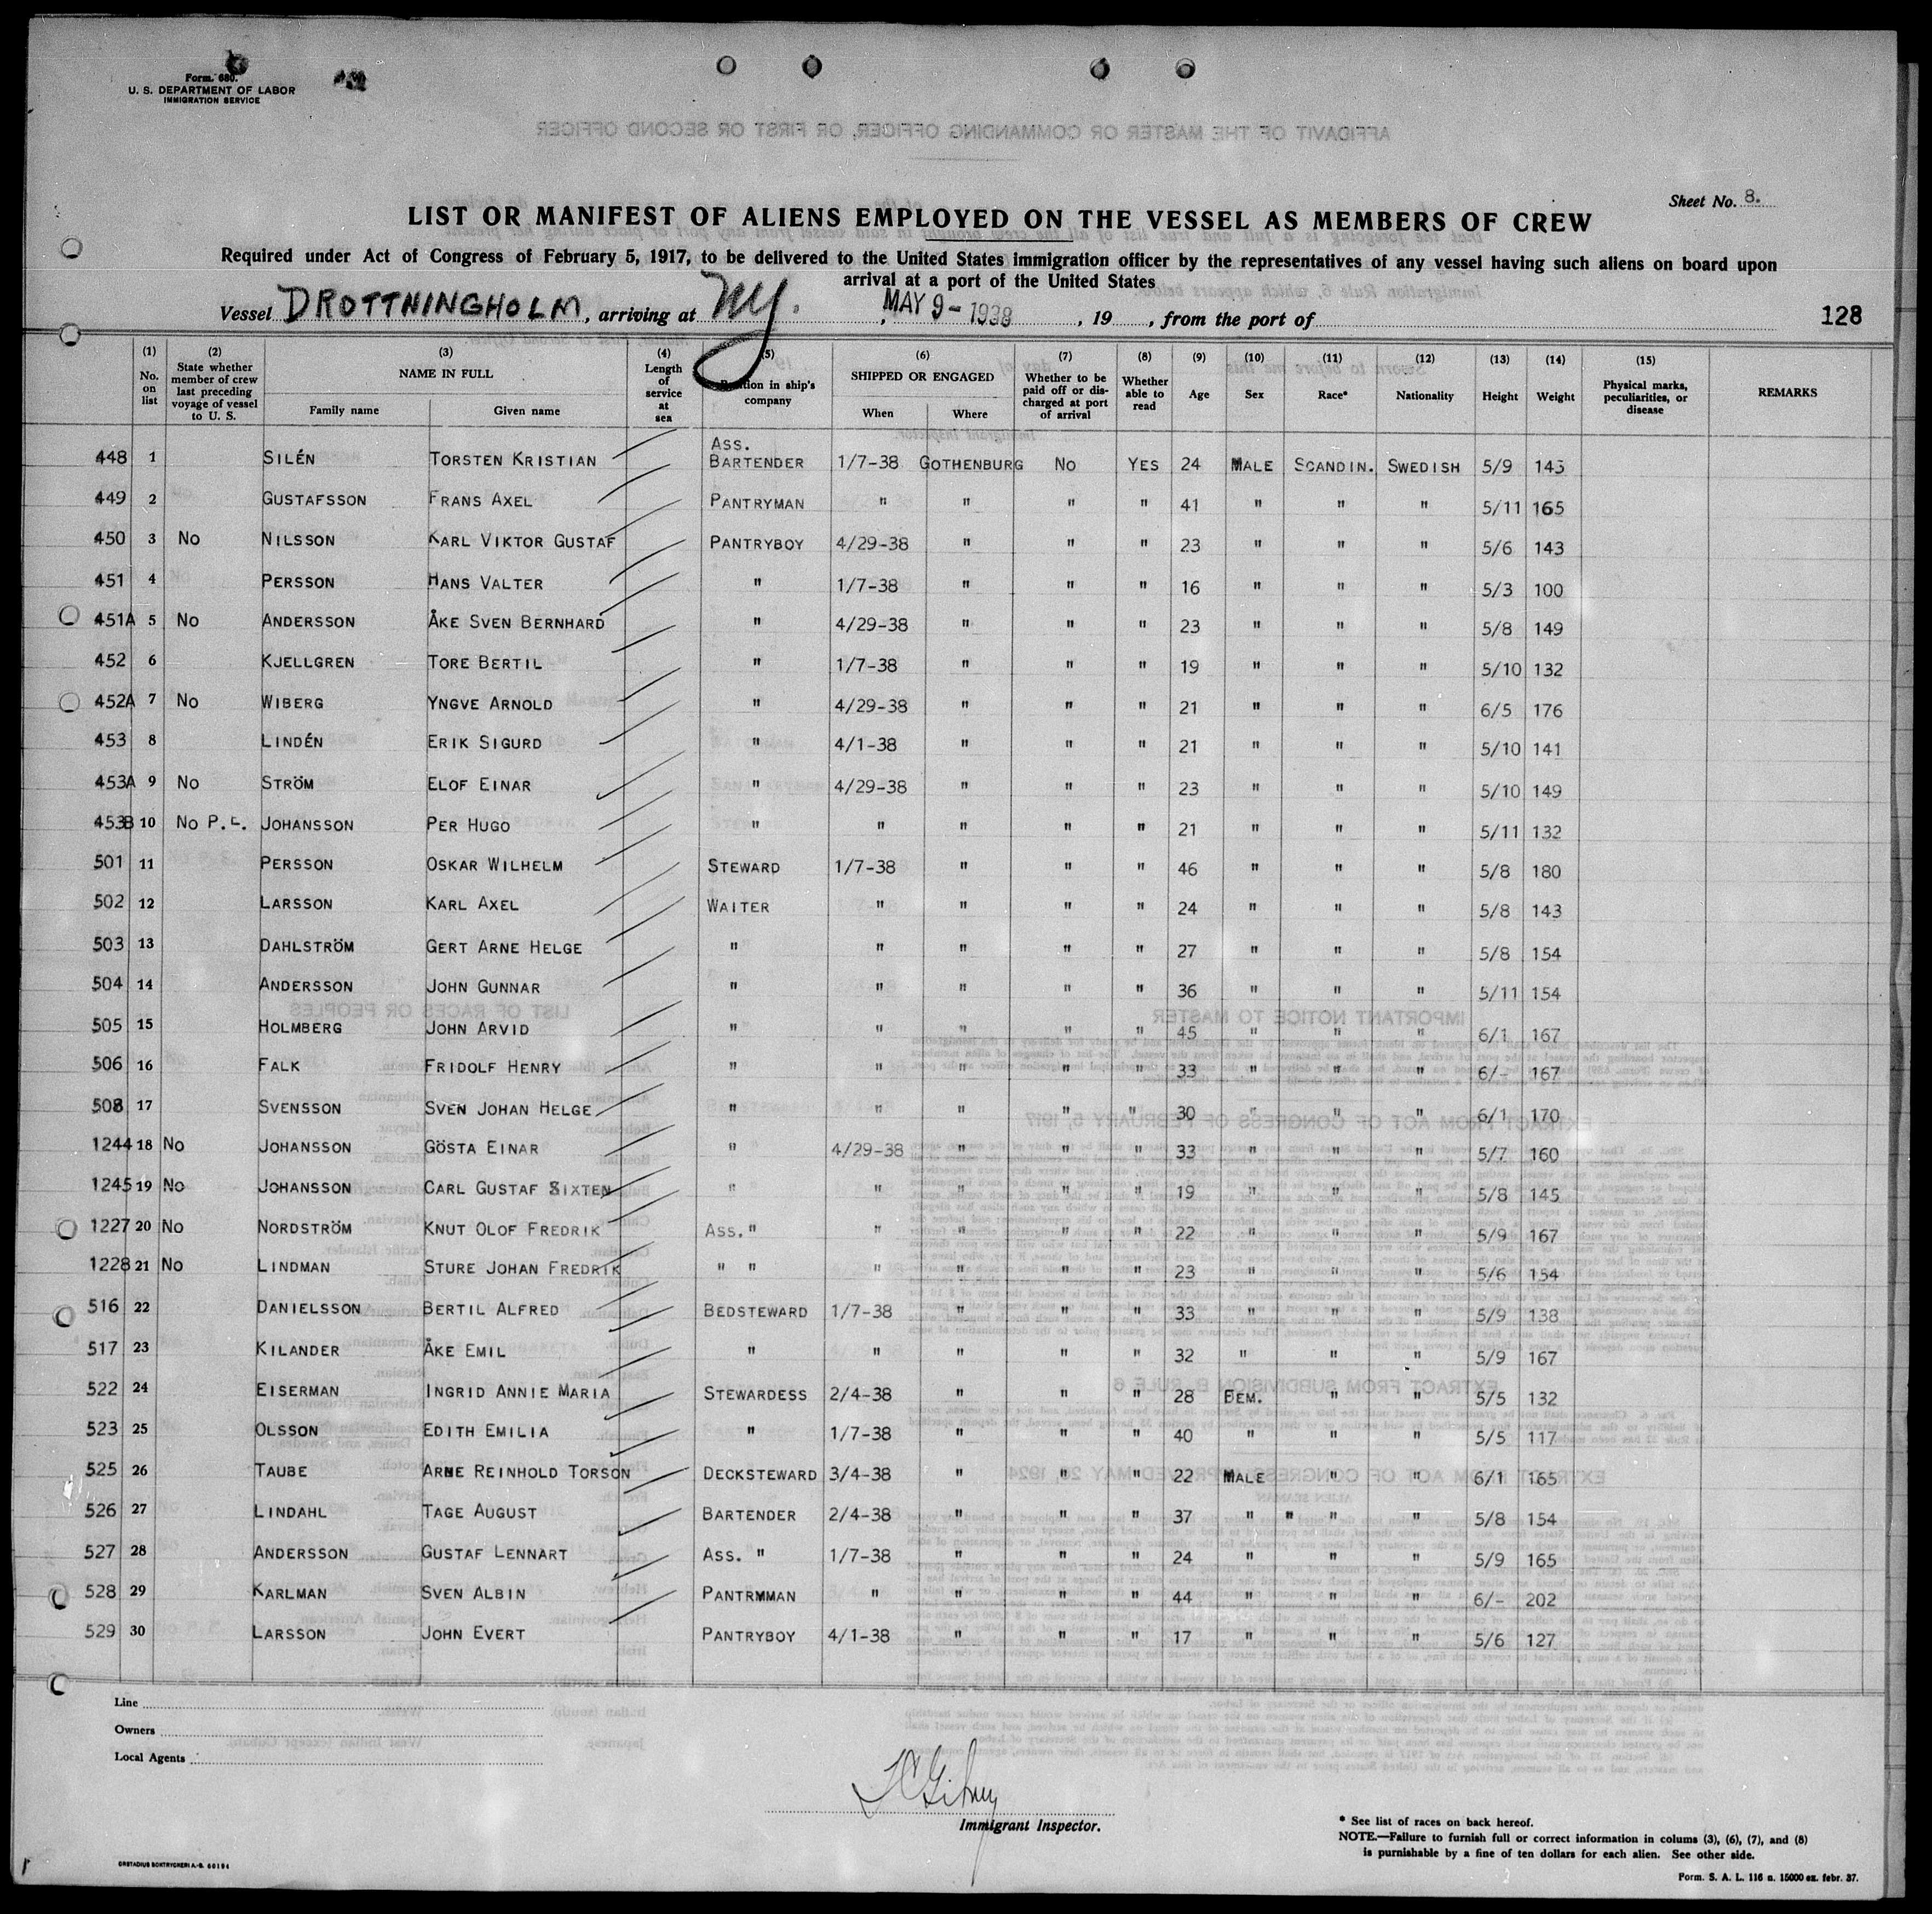 Form. 680.
U. S. DEPARTMENT OF LABOR
IMMIGRATION SERVICE
AFFIDAVIT OF THE MASTER OR COMMANDING OFFICER, OR FIRST OR SECOND OFFICER
Sheet No. 8.
LIST OR MANIFEST OF ALIENS EMPLOYED ON THE VESSEL AS MEMBERS OF CREW
Required under Act of Congress of February 5, 1917, to be delivered to the United States immigration officer by the representatives of any vessel having such aliens on board upon
arrival at a port of the United States
Vessel DROTTNINGHOLM, arriving at NY. , MAY 9-1938 , 19 , from the port of 128
(1) No. on list (2) State whether member of crew last preceding voyage of vessel to U. S. (3) NAME IN FULL Family name Given name (4) Length of service at sea (5) Position in ship's company (6) SHIPPED OR ENGAGED When Where (7) Whether to be paid off or discharged at port of arrival (8) Whether able to read (9) Age (10) Sex (11) Race* (12) Nationality (13) Height (14) Weight (15) Physical marks, peculiarities, or disease REMARKS
448 1 SILÉN TORSTEN KRISTIAN ASS. BARTENDER 1/7-38 GOTHENBURG NO YES 24 MALE SCANDIN. SWEDISH 5/9 143
449 2 GUSTAFSSON FRANS AXEL PANTRYMAN " " " " 41 " " " 5/11 165
450 3 NO NILSSON KARL VIKTOR GUSTAF PANTRYBOY 4/29-38 " " " 23 " " " 5/6 143
451 4 PERSSON HANS VALTER " 1/7-38 " " " 16 " " " 5/3 100
451A 5 NO ANDERSSON ÅKE SVEN BERNHARD " 4/29-38 " " " 23 " " " 5/8 149
452 6 KJELLGREN TORE BERTIL " 1/7-38 " " " 19 " " " 5/10 132
452A 7 NO WIBERG YNGVE ARNOLD " 4/29-38 " " " 21 " " " 6/5 176
453 8 LINDÉN ERIK SIGURD " 4/1-38 " " " 21 " " " 5/10 141
453A 9 NO STRÖM ELOF EINAR " 4/29-38 " " " 23 " " " 5/10 149
453B 10 NO P.E. JOHANSSON PER HUGO " " " " " 21 " " " 5/11 132
501 11 PERSSON OSKAR WILHELM STEWARD 1/7-38 " " " 46 " " " 5/8 180
502 12 LARSSON KARL AXEL WAITER " " " " 24 " " " 5/8 143
503 13 DAHLSTRÖM GERT ARNE HELGE " " " " " 27 " " " 5/8 154
504 14 ANDERSSON JOHN GUNNAR " " " " " 36 " " " 5/11 154
505 15 HOLMBERG JOHN ARVID " " " " " 45 " " " 6/1 167
506 16 FALK FRIDOLF HENRY " " " " " 33 " " " 6/- 167
508 17 SVENSSON SVEN JOHAN HELGE " " " " " 30 " " " 6/1 170
1244 18 NO JOHANSSON GÖSTA EINAR " 4/29-38 " " " 33 " " " 5/7 160
1245 19 NO JOHANSSON CARL GUSTAF SIXTEN " " " " " 19 " " " 5/8 145
1227 20 NO NORDSTRÖM KNUT OLOF FREDRIK ASS. " " " " " 22 " " " 5/9 167
1228 21 NO LINDMAN STURE JOHAN FREDRIK " " " " " " 23 " " " 5/6 154
516 22 DANIELSSON BERTIL ALFRED BEDSTEWARD 1/7-38 " " " 33 " " " 5/9 138
517 23 KILANDER ÅKE EMIL " " " " " 32 " " " 5/9 167
522 24 EISERMAN INGRID ANNIE MARIA STEWARDESS 2/4-38 " " " 28 BEM. " " 5/5 132
523 25 OLSSON EDITH EMILIA " 1/7-38 " " " 40 " " " 5/5 117
525 26 TAUBE ARNE REINHOLD TORSON DECKSTEWARD 3/4-38 " " " 22 MALE " " 6/1 165
526 27 LINDAHL TAGE AUGUST BARTENDER 2/4-38 " " " 37 " " " " 5/8 154
527 28 ANDERSSON GUSTAF LENNART ASS. " 1/7-38 " " " 24 " " " 5/9 165
528 29 KARLMAN SVEN ALBIN PANTRMMAN " " " " 44 " " " 6/- 202
529 30 LARSSON JOHN EVERT PANTRYBOY 4/1-38 " " " 17 " " " 5/6 127
Line
Owners
Local Agents
Immigrant Inspector.
* See list of races on back hereof.
NOTE.—Failure to furnish full or correct information in colums (3), (6), (7), and (8)
is punishable by a fine of ten dollars for each alien. See other side.
Form. S. A. L. 116 n. 15000 ex. febr. 37.